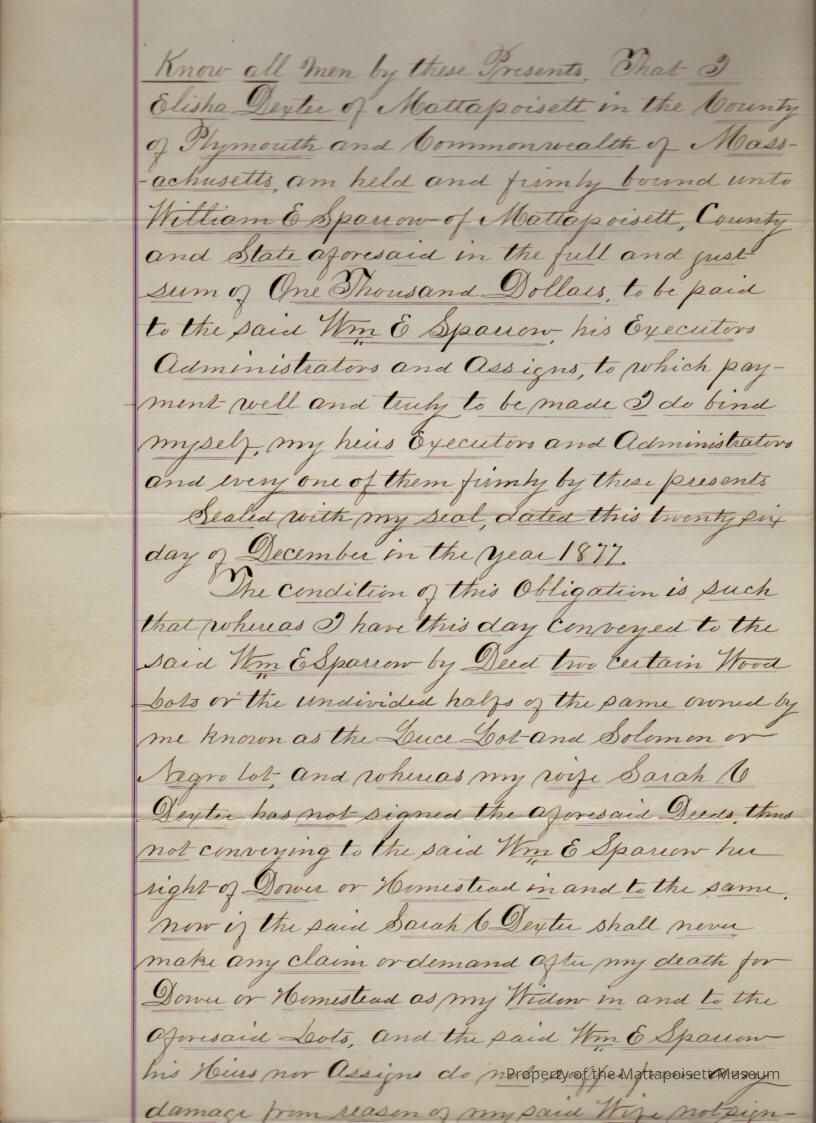 Know all Men by these Presents. That I
Elisha Dexter of Mattapoisett in the County
of Plymouth and Commonwealth of Mass-
-achusetts, am held and firmly bound unto
William E Sparrow of Mattapoisett, County
and State aforesaid in the full and just
sum of One Thousand Dollars, to be paid
to the said Wm E Sparrow, his Executors
Administrators and Assigns, to which pay-
ment well and truly to be made I do bind
myself, my heirs Executors and Administrators
and every one of them firmly by these presents
Sealed with my seal, dated this twenty six
day of December in the year 1877.
The condition of this Obligation is such
that whereas I have this day conveyed to the
said Wm E Sparrow by Deed two certain Wood
Lots or the undivided halfs of the same owned by
me known as the Luce Lot and Solomon or
Negro lot, and whereas my wife Sarah C
Dexter has not signed the aforesaid Deeds, thus
not conveying to the said Wm E Sparrow her
right of Dower or Homestead in and to the same.
now if the said Sarah C Dexter shall never
make any claim or demand after my death for
Dower or Homestead as my Widow in and to the
aforesaid Lots, and the said Wm E Sparrow
his Heirs nor Assigns do not suffer from any
Property of the Mattapoisett Museum
damage from reason of my said Wife not sign-